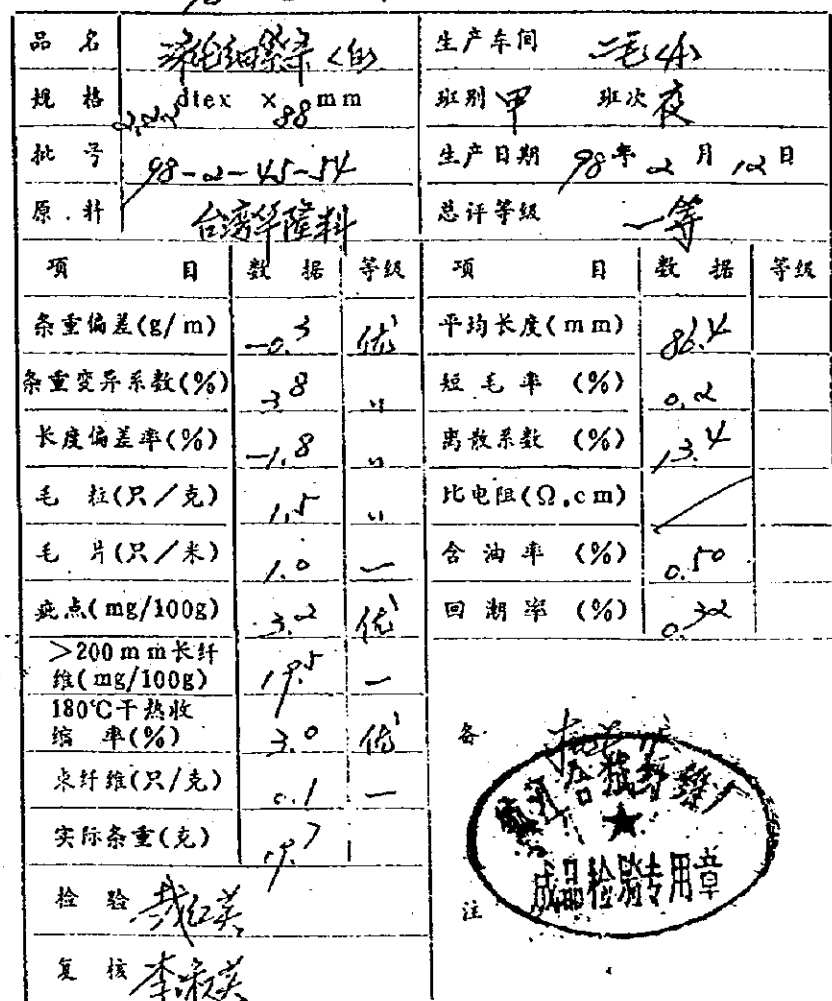 品名 涤纶细条 <白> 生产车间 二毛
规格 2.22 dtex × 88 mm 班别 甲 班次 夜
批号 98-2-45-54 生产日期 98年 2月 12日
原料 台湾华隆料 总评等级 一等
项目 数据 等级 项目 数据 等级
条重偏差(g/m) -0.3 优 平均长度(mm) 86.4
条重变异系数(%) 3.8 〃 短毛率 (%) 0.2
长度偏差率(%) -1.8 〃 离散系数 (%) 13.4
毛粒(只/克) 1.5 〃 比电阻(Ω.cm)
毛片(只/米) 1.0 一 含油率 (%) 0.50
疵点(mg/100g) 3.2 优 回潮率 (%) 0.32
>200mm长纤
维(mg/100g) 19.5 一
180℃干热收
缩率(%) 3.0 优
束纤维(只/克) 0.1 一
实际条重(克) 19.7
检验
复核 李淑英
备注
合成纤维厂
成品检验专用章